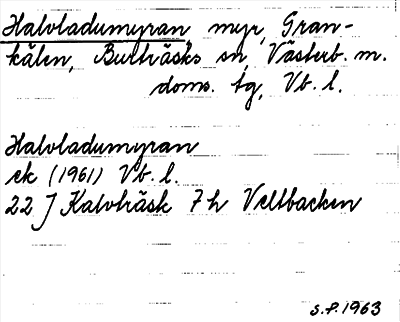 Halvladumyran myr, Gran-
kälen, Burträsks sn, Västerb. m.
doms. tg, Vb. l.
Halvladumyran
ek (1961) Vb. l.
22 J Kalvträsk 7 h Veltbacken
S.P. 1963